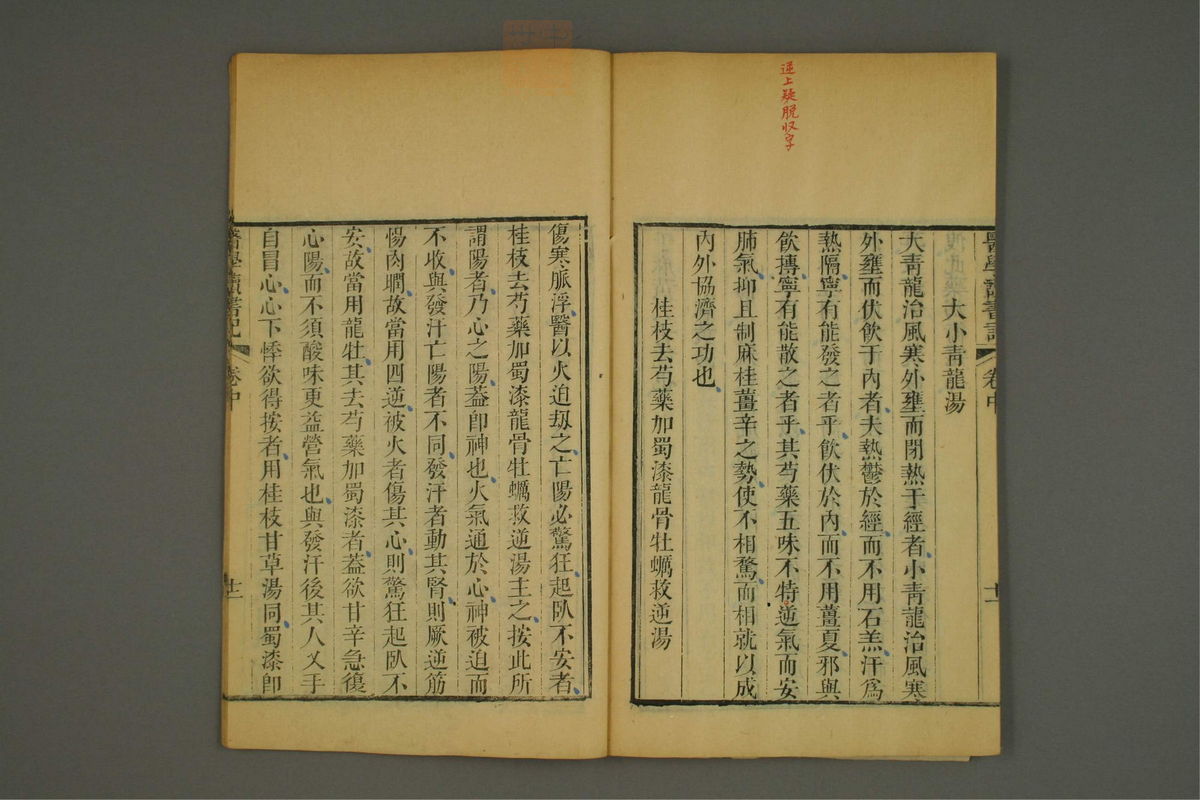 逆上疑脫収字
醫學讀書記
卷中
大小青龍湯
大青龍治風寒外壅而閉熱于經者小青龍治風寒
外壅而伏飲于內者夫熱鬱於經而不用石羔汗爲
熱隔寧有能發之者乎飲伏於內而不用薑夏邪與
飲摶寧有能散之者乎其芍藥五味不特逆氣而安
肺氣抑且制麻桂薑辛之勢使不相騖而相就以成
內外協濟之功也
桂枝去芍藥加蜀漆龍骨牡蠣救逆湯
傷寒脈浮醫以火迫刼之亡陽必驚狂起臥不安者
桂枝去芍藥加蜀漆龍骨牡蠣救逆湯主之按此所
謂陽者乃心之陽葢卽神也火氣通於心神被迫而
不收與發汗亡陽者不同發汗者動其腎則厥逆筋
惕肉瞤故當用四逆被火者傷其心則驚狂起臥不
安故當用龍牡其去芍藥加蜀漆者葢欲甘辛急復
心陽而不須酸味更益營氣也與發汗後其人叉手
自冒心心下悸欲得按者用桂枝甘草湯同蜀漆卽
醫學讀書記
卷中